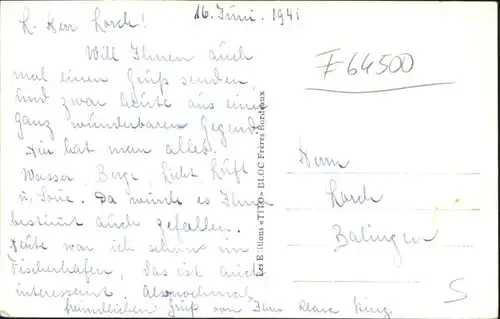 16. Juni. 1941
L. Herr Lorch!
Will Ihnen auch
mal einen Gruß senden,
und zwar heute aus einer
ganz wunderbaren Gegend.
Hier hat man alles.
Wasser, Berge, Licht, Luft
u. Sonne. Da würde es Ihnen
bestimmt auch gefallen.
Heute war ich schon im
Fischerhafen, das ist auch
interessant. Also nochmal
freundlichen Gruß von Ihrer Klara
Les Editions «TITO» BLOC Frères Bordeaux
F64500
Herrn
Lorch
Balingen
S